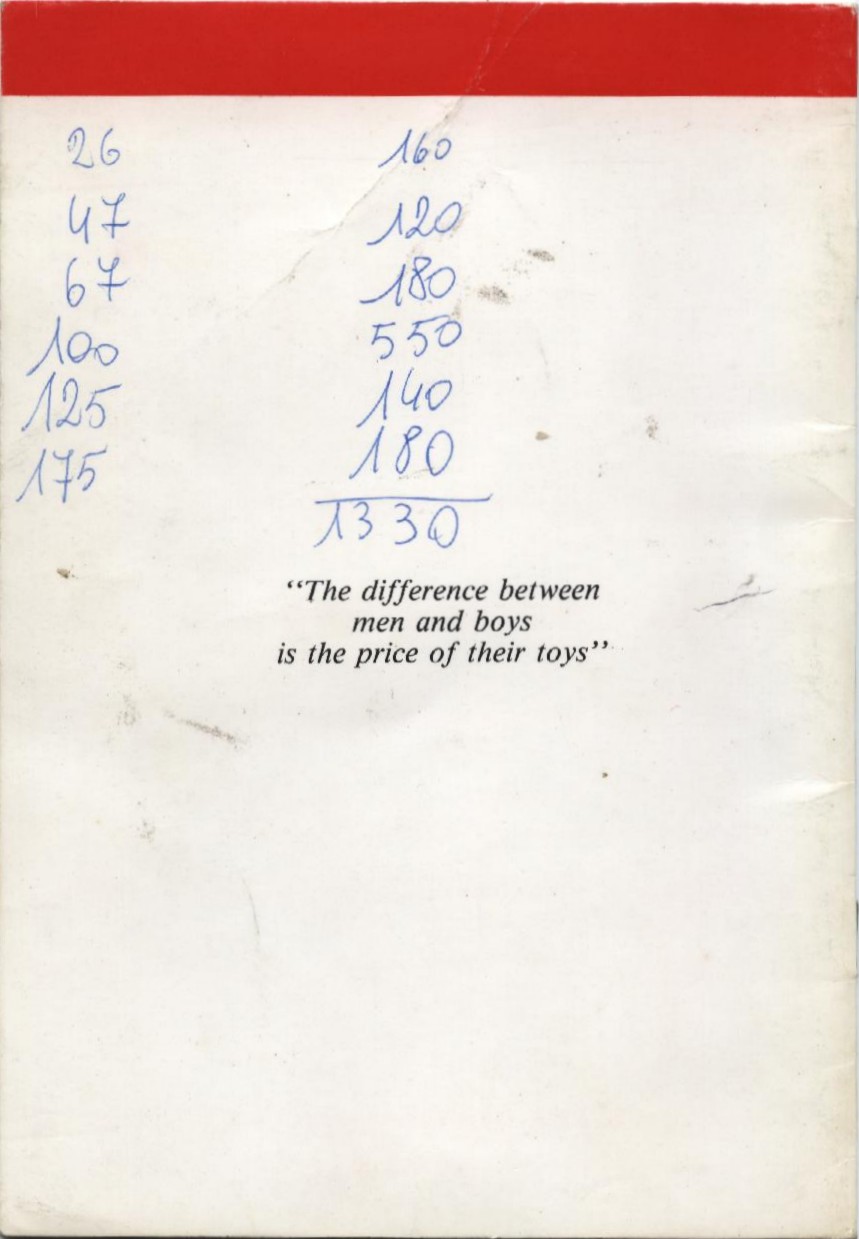 26
47
67
100
125
175
160
120
180
550
140
180
1330
“The difference between
men and boys
is the price of their toys”